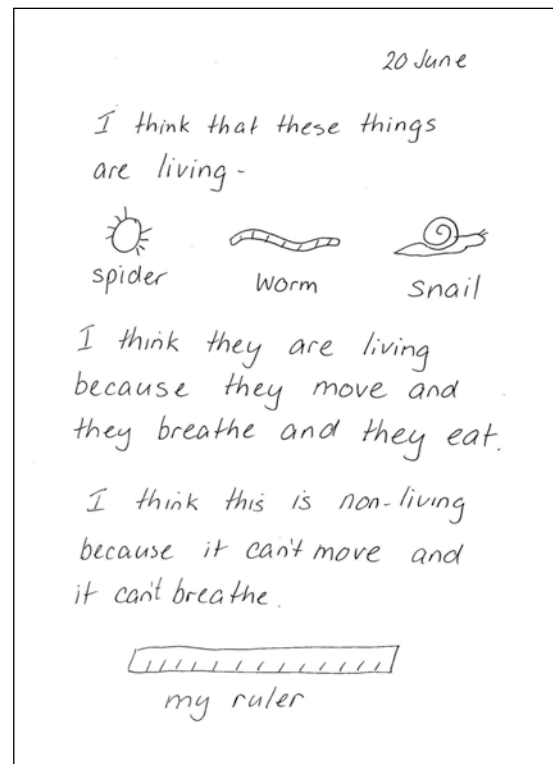 20 June
I think that these things
are living-
spider worm snail
I think they are living
because they move and
they breathe and they eat.
I think this is non-living
because it can't move and
it can't breathe.
my ruler